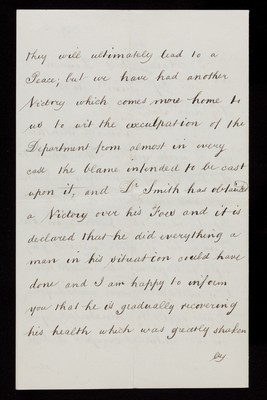 they will ultimately lead to a
Peace; but we have had another
Victory which comes more home to
us to wit the exculpation of the
Department from almost in every
case the blame intended to be cast
upon it, and Dr Smith has obtained
a Victory over his Foes and it is
declared that he did everything a
man in his situation could have
done and I am happy to inform
you that he is gradually recovering
his health which was greatly shaken
by